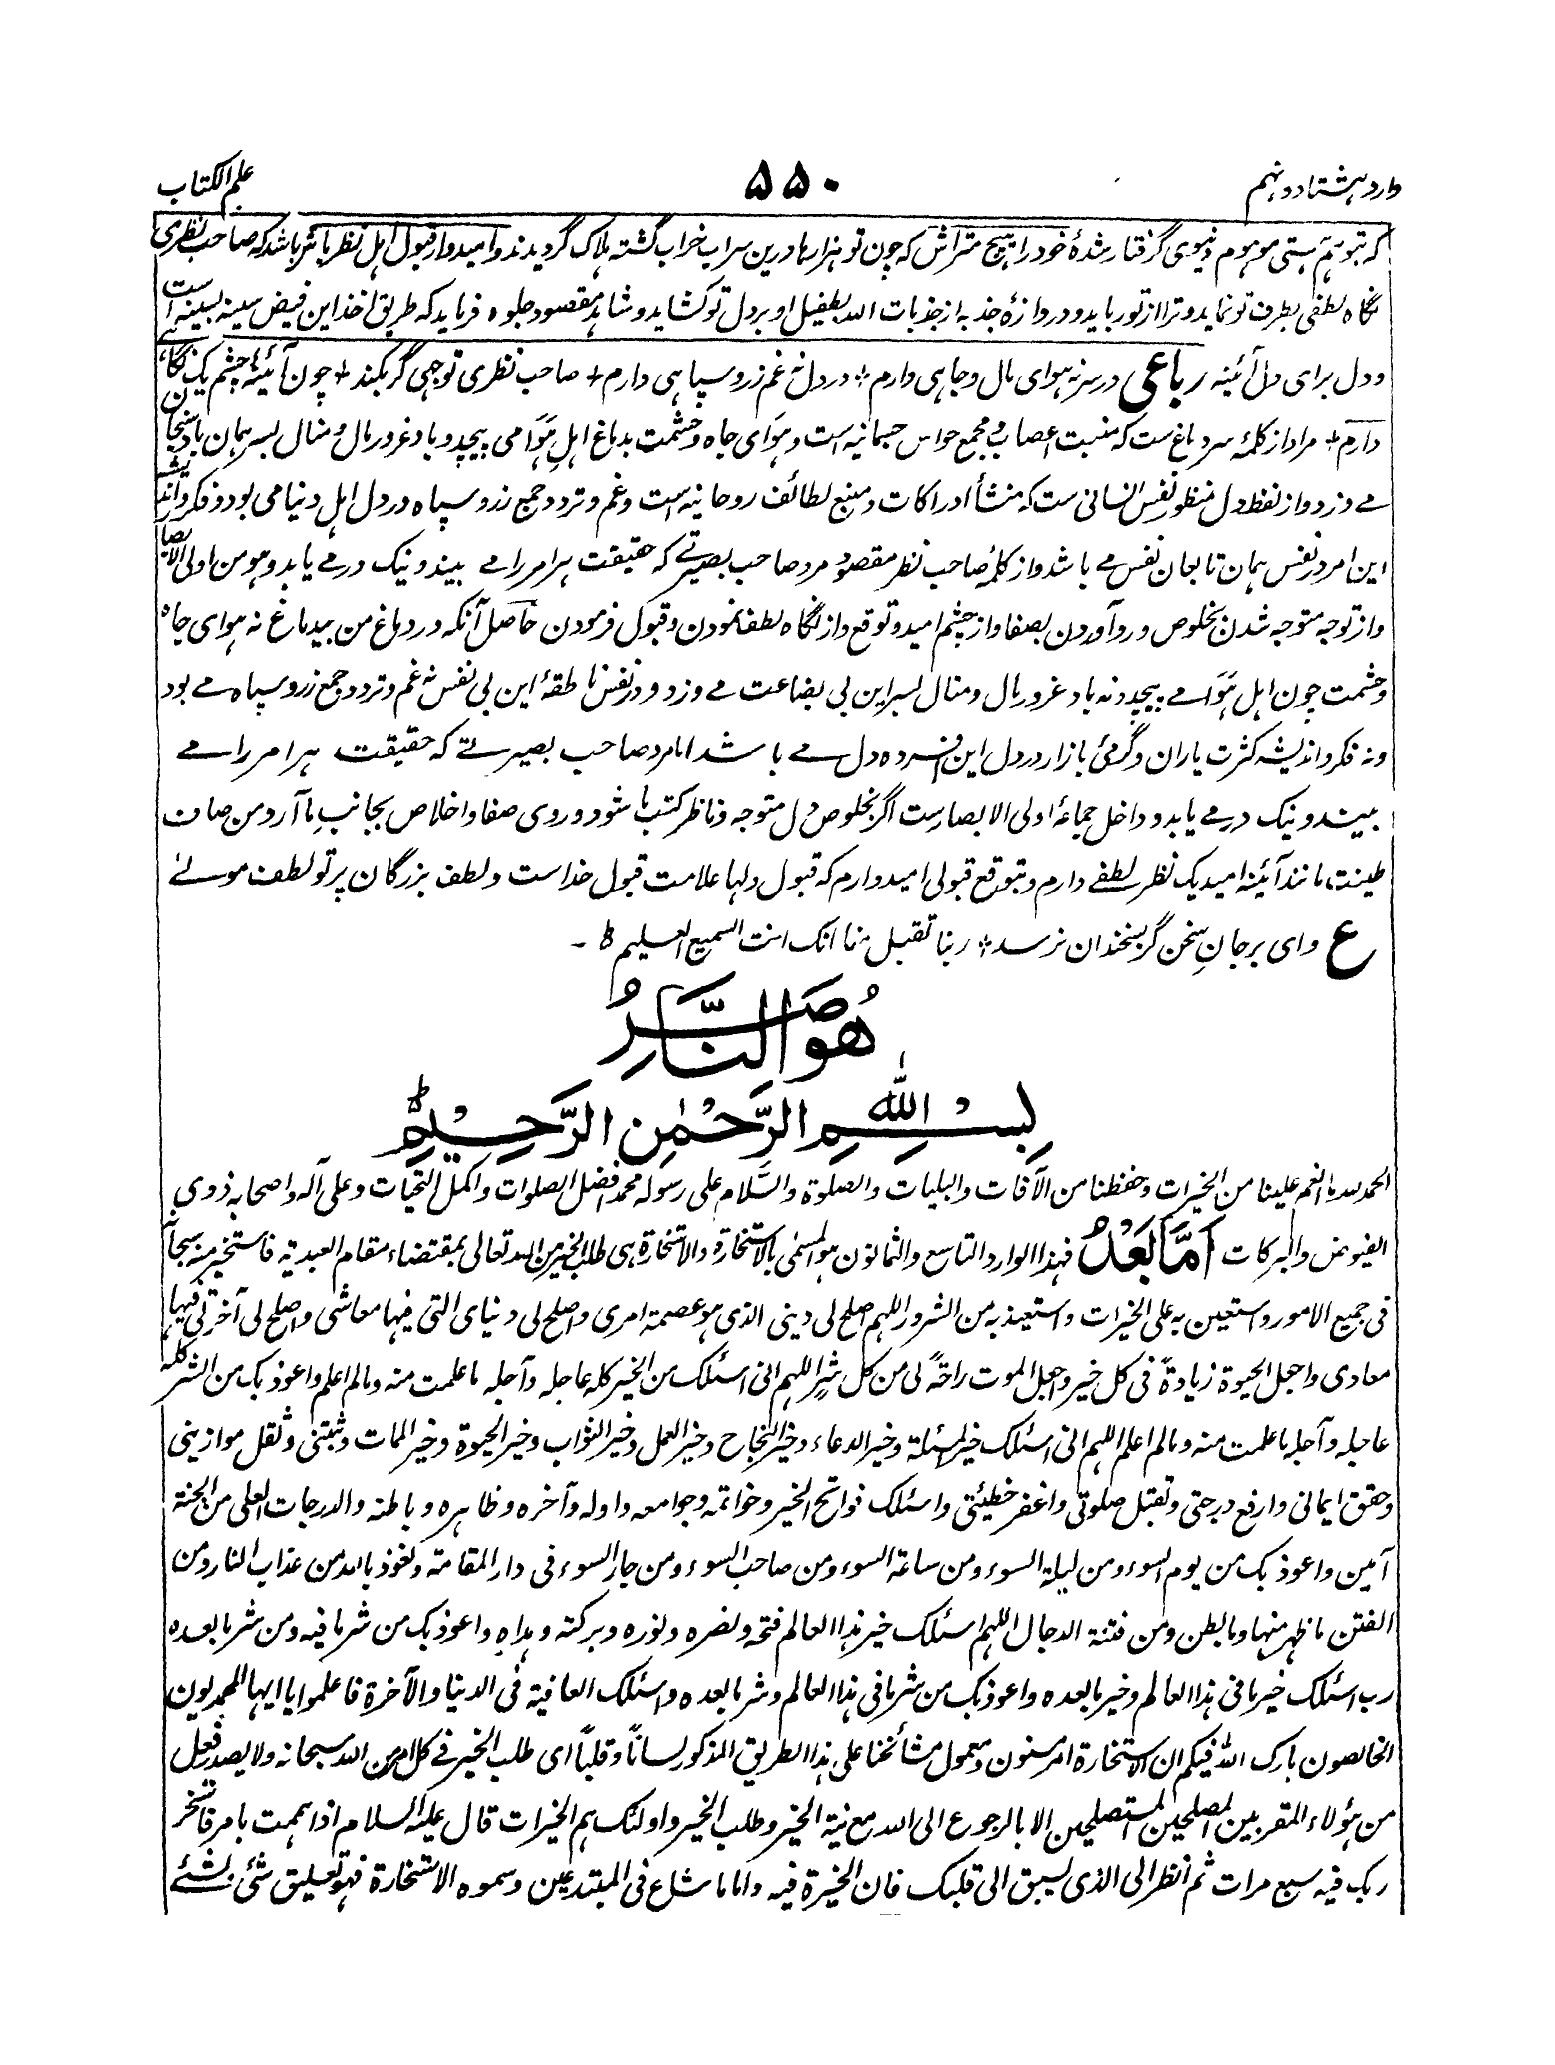 وارد هشتاد و نهم
۵۵۰
علم الکتاب
که بتوهم هستی موهوم دنیوی گرفتار شدهٔ خود را هیچ متراش که چون تو هزارها درین سراب خراب گشته هلاک گردیدند و امیدوار قبول اهل نظر باش باشد که صاحب نظری
نگاه لطفی بطرف تو نماید و ترا از تو رباید و دروازهٔ جذبه از جذبات الله بطفیل او بر دل تو کشاید و شاهد مقصود جلوه فرماید که طریق اخذ این فیض سینه بسینه است
و دل برای دل آئینه رباعی در سر نه هوای مال و جاهی دارم + در دل نه غم زر و سپاهی دارم + صاحب نظری توجهی گر بکند + چون آئینه چشم یک نگاهی
دارم + مراد از کلمهٔ سر دماغ ست که منبت اعصاب و مجمع حواس جسمانیه است و هوای جاه و حشمت بدماغ اهل هوا می پیچد و باد غرور مال و منال بسر همان
مے وزد و از لفظ دل منظور نفس انسانی ست که منشأ ادراکات و منبع لطائف روحانیه است و غم و تردد جمع زر و سپاه در دل اهل دنیا می بود و فکر و اندیشه
این امر در نفس همان تابعان نفس مے باشد و از کلمهٔ صاحب نظر مقصود مرد صاحب بصیرتے که حقیقت هر امر را مے بیند و نیک در مے یابد و هو من اولی الابصار
و از توجه متوجه شدن بخلوص و رو آوردن بصفا و از چشم امید و توقع و از نگاه لطف نمودن و قبول فرمودن حاصل آنکه در دماغ من بیدماغ نه هوای جاه
و حشمت چون اهل هوا مے پیچد و نه باد غرور مال و منال بسر این بی بضاعت مے وزد و در نفس ناطقهٔ این بی نفس نه غم و تردد جمع زر و سپاه مے بود
و نه فکر و اندیشه کثرت یاران و گرمئ بازار در دل این افسرده دل مے باشد اما مرد صاحب بصیرتے که حقیقت هر امر را مے
بیند و نیک در مے یابد و داخل جماعهٔ اولی الابصار ست اگر بخلوص دل متوجه و ناظر کتب ما شود و روی صفا و اخلاص بجانب ما آرد من صاف
طینت مانند آئینه امید یک نظر لطفے دارم و بتوقع قبولی امیدوارم که قبول دلها علامت قبول خداست و لطف بزرگان پرتو لطف مولے
ع وای بر جان سخن گر بسخندان نرسد + ربنا تقبل منا انک انت السمیع العلیم ط ۔
هُوَ النَّاصِرُ
بِسْمِ اللهِ الرَّحْمٰنِ الرَّحِیْمِ ط
الحمد لله ما انعم علینا من الخیرات و حفظنا من الآفات والبلیات والصلوة والسَّلام علی رسوله محمد افضل الصلوات واکمل التحیات و علی آله واصحابه ذوی
الفیوض والبرکات اَمَّا بَعْدُ فهذا الوارد التاسع والثمانون هو المسمی بالاستخارة والاستخارة هی طلب الخیر من الله تعالی بمقتضاء مقام العبدیة فاستخیر منه سبحانه
فی جمیع الامور واستعین به علی الخیرات واستعیذ به من الشرور اللهم اصلح لی دینی الذی هو عصمة امری واصلح لی دنیای التی فیها معاشی واصلح لی آخرتی فیها
معادی واجعل الحیوة زیادةً فی کل خیر واجعل الموت راحةً لی من کل شرٍ اللهم انی اسئلک من الخیر کله عاجله وآجله ما علمت منه وما لم اعلم واعوذ بک من الشر کله
عاجله وآجله ما علمت منه وما لم اعلم اللهم انی اسئلک خیر المسئلة وخیر الدعاء وخیر النجاح وخیر العمل وخیر الثواب وخیر الحیوة وخیر الممات وثبتنی وثقل موازینی
وحقق ایمانی وارفع درجتی وتقبل صلوتی واغفر خطیئتی واسئلک فواتح الخیر وخواتمه وجوامعه واوله وآخره وظاهره وباطنه والدرجات العلی من الجنة
آمین واعوذ بک من یوم السوء ومن لیلة السوء ومن ساعة السوء ومن صاحب السوء ومن جار السوء فی دار المقامة ونعوذ بالله من عذاب النار ومن
الفتن ما ظهر منها وما بطن ومن فتنة الدجال اللهم اسئلک خیر هذا العالم فتحه ونصره ونوره وبرکته وهداه واعوذ بک من شر ما فیه ومن شر ما بعده
رب اسئلک خیر ما فی هذا العالم وخیر ما بعده واعوذ بک من شر ما فی هذا العالم وشر ما بعده واسئلک العافیة فی الدنیا والآخرة فاعلموا یا ایها المحمدیون
الخالصون بارک الله فیکم ان الاستخارة امر مسنون ومعمول مشائخنا علی هذا الطریق المذکور لساناً وقلباً ای طلب الخیر فی کل امر من الله سبحانه ولا یصدر فعل
من هؤلاء المقربین المصلحین المستصلحین الا بالرجوع الی الله مع نیة الخیر وطلب الخیر واولئک هم الخیرات قال علیه السلام اذا هممت بامر فاستخر
ربک فیه سبع مرات ثم انظر الی الذی یسبق الی قلبک فان الخیرة فیه واما ما شاع فی المبتدعین وسموه الاستخارة فهو تعلیق شئ بشئے